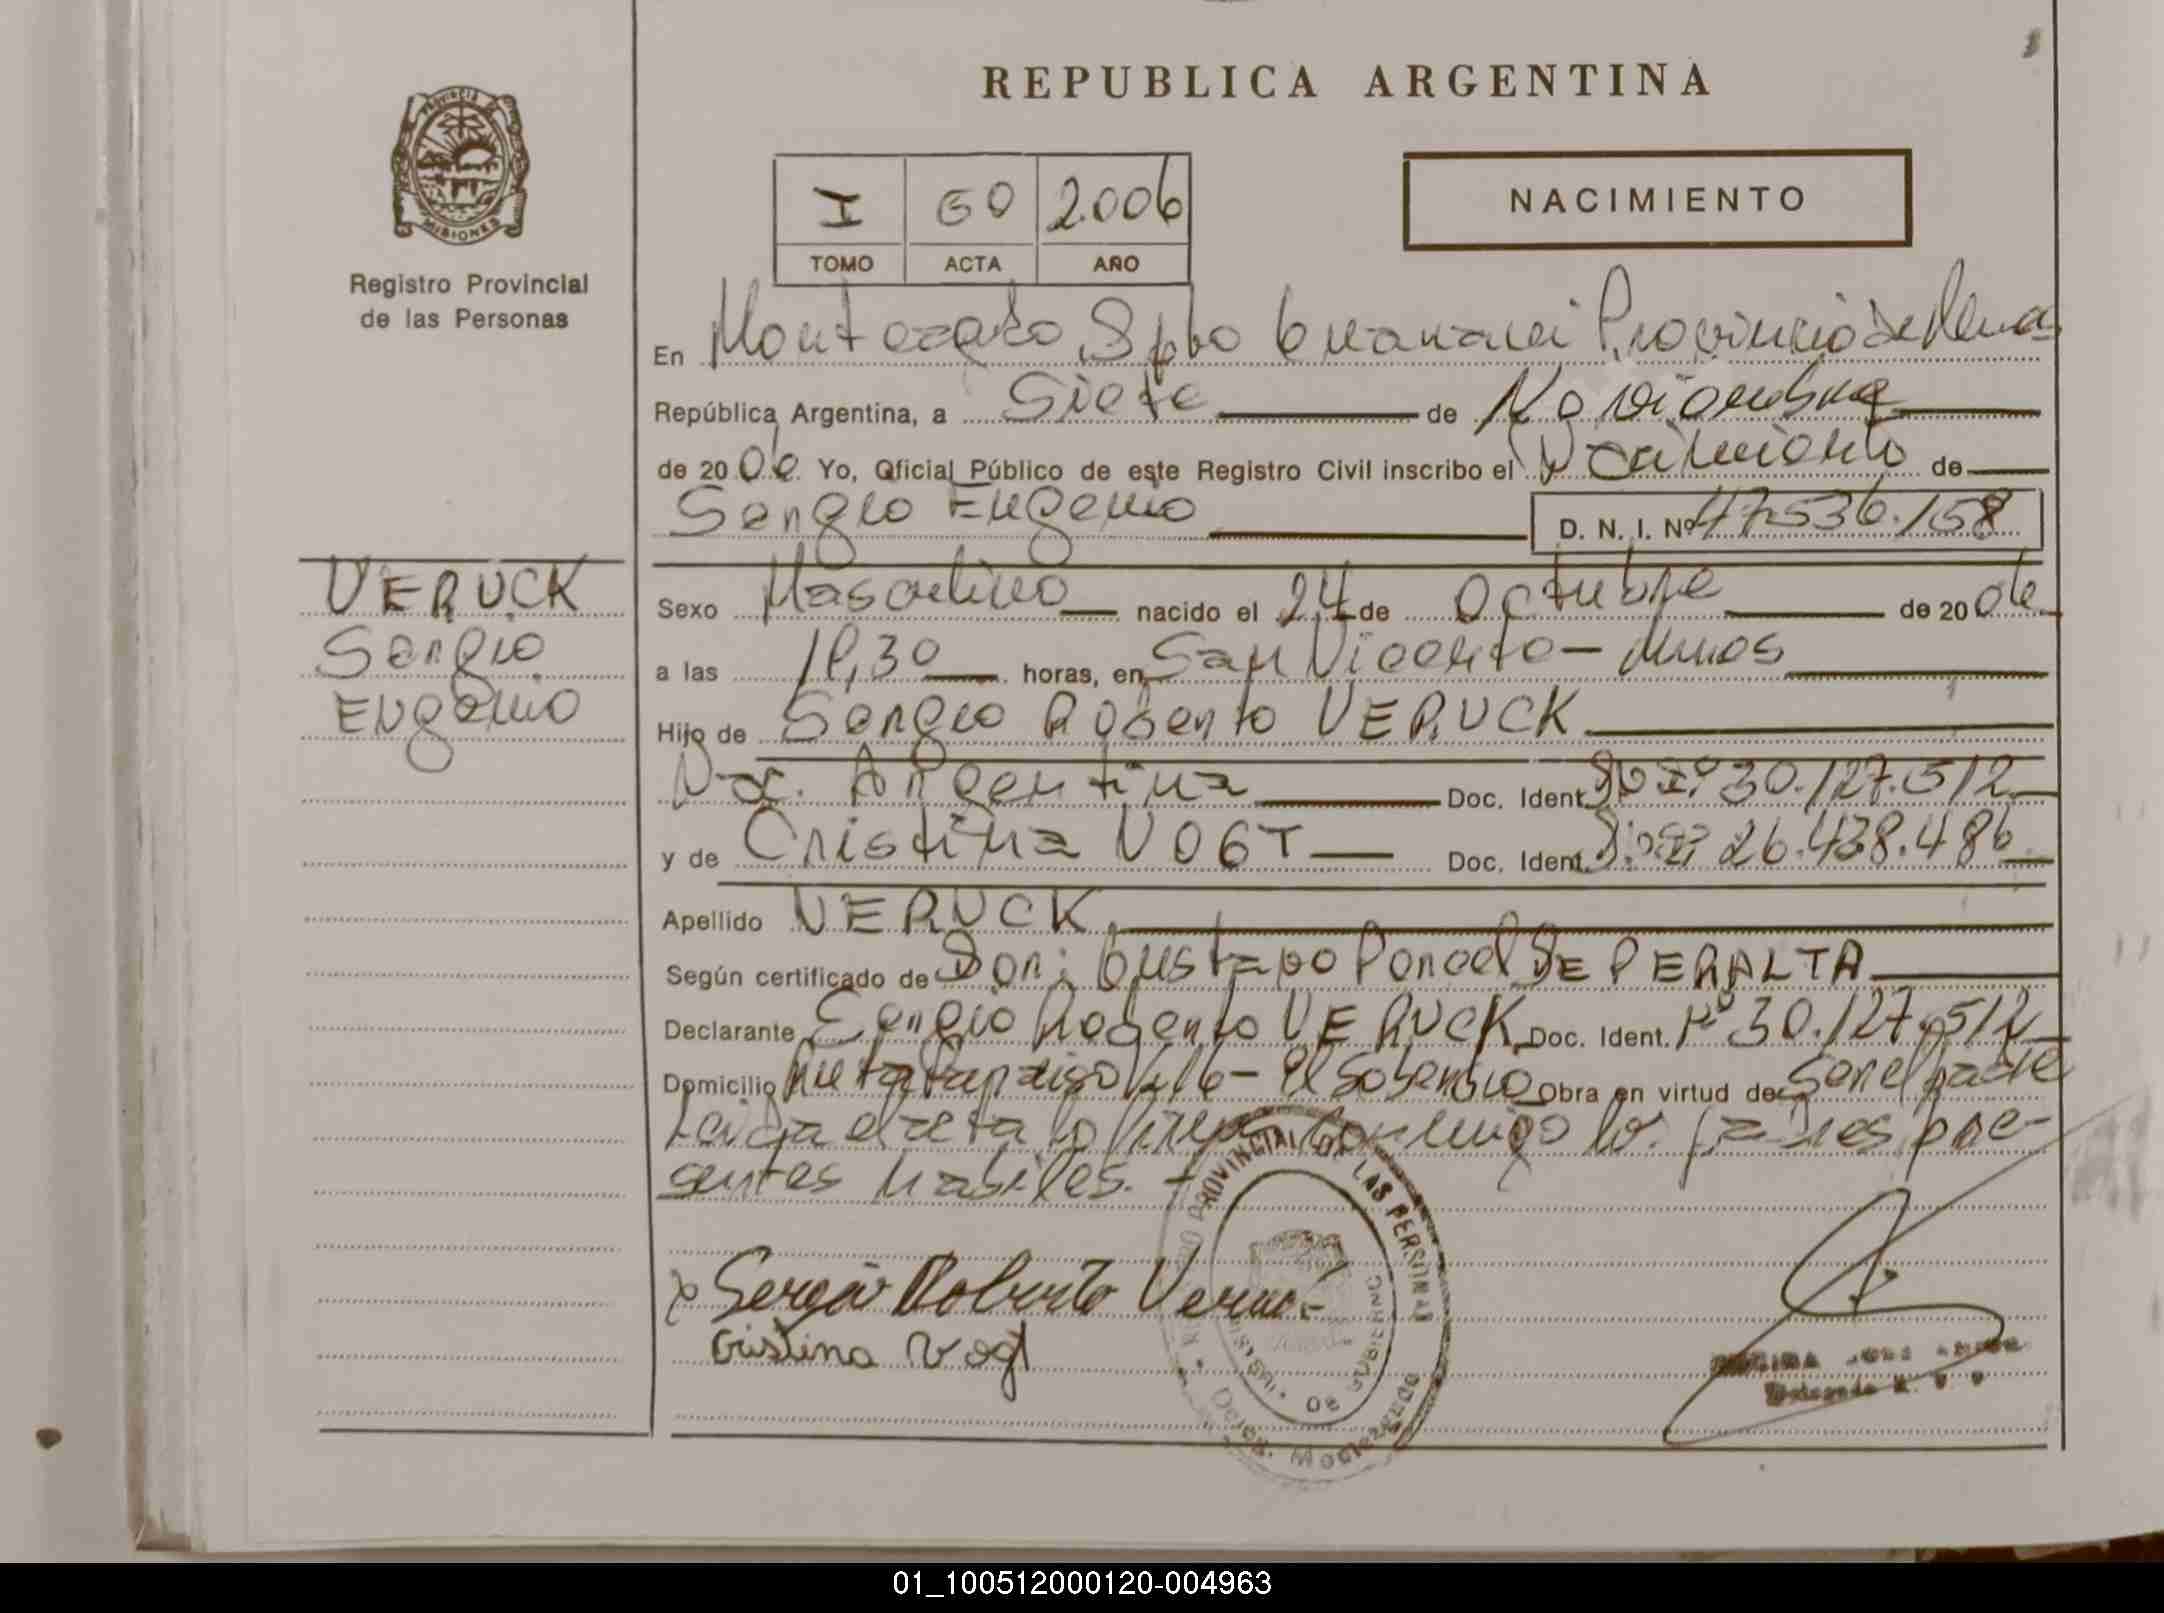 REPUBLICA ARGENTINA
PROVINCIA DE
MISIONES
Registro Provincial
de las Personas
I 60 2006
TOMO ACTA AÑO
NACIMIENTO
En Montecarlo, Dpto Provincia de
República Argentina, a Siete de Noviembre
de 2006. Yo, Oficial Público de este Registro Civil inscribo el Nacimiento de
Sergio Eugenio D. N. I. Nº 47.536.158
VERUCK
Sergio
Eugenio
Sexo Masculino nacido el 24 de Octubre de 2006
a las horas, en San Vicente - Mnes
Hijo de Sergio Roberto VERUCK
Nac. Argentina Doc. Ident. 30.127.512
y de Cristina VOGT Doc. Ident. 26.438.486
Apellido VERUCK
Según certificado de Gustavo Poncel DE PERALTA
Declarante Sergio Roberto VERUCK Doc. Ident. Nº 30.127.512
Domicilio Ruta El Soberbio Obra en virtud de Ser el padre
Leida el acta la firma conmigo los padres pre-
sentes habiles. -
PROVINCIAL DE LAS PERSONAS
x Sergio Roberto
Cristina Vogt
01_100512000120-004963